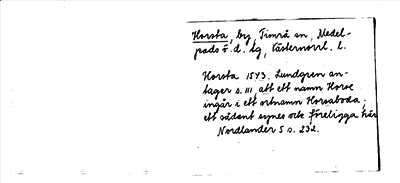 Horsta, by, Timrå sn, Medel-
pads ö. d. tg, Västernorrl. l.
Horsta 1543. Lundgren an-
tager s. 111 att ett namn Horse
ingår i ett ortnamn Horsaboda;
ett sådant synes ock föreligga här
Nordlander S s. 232.